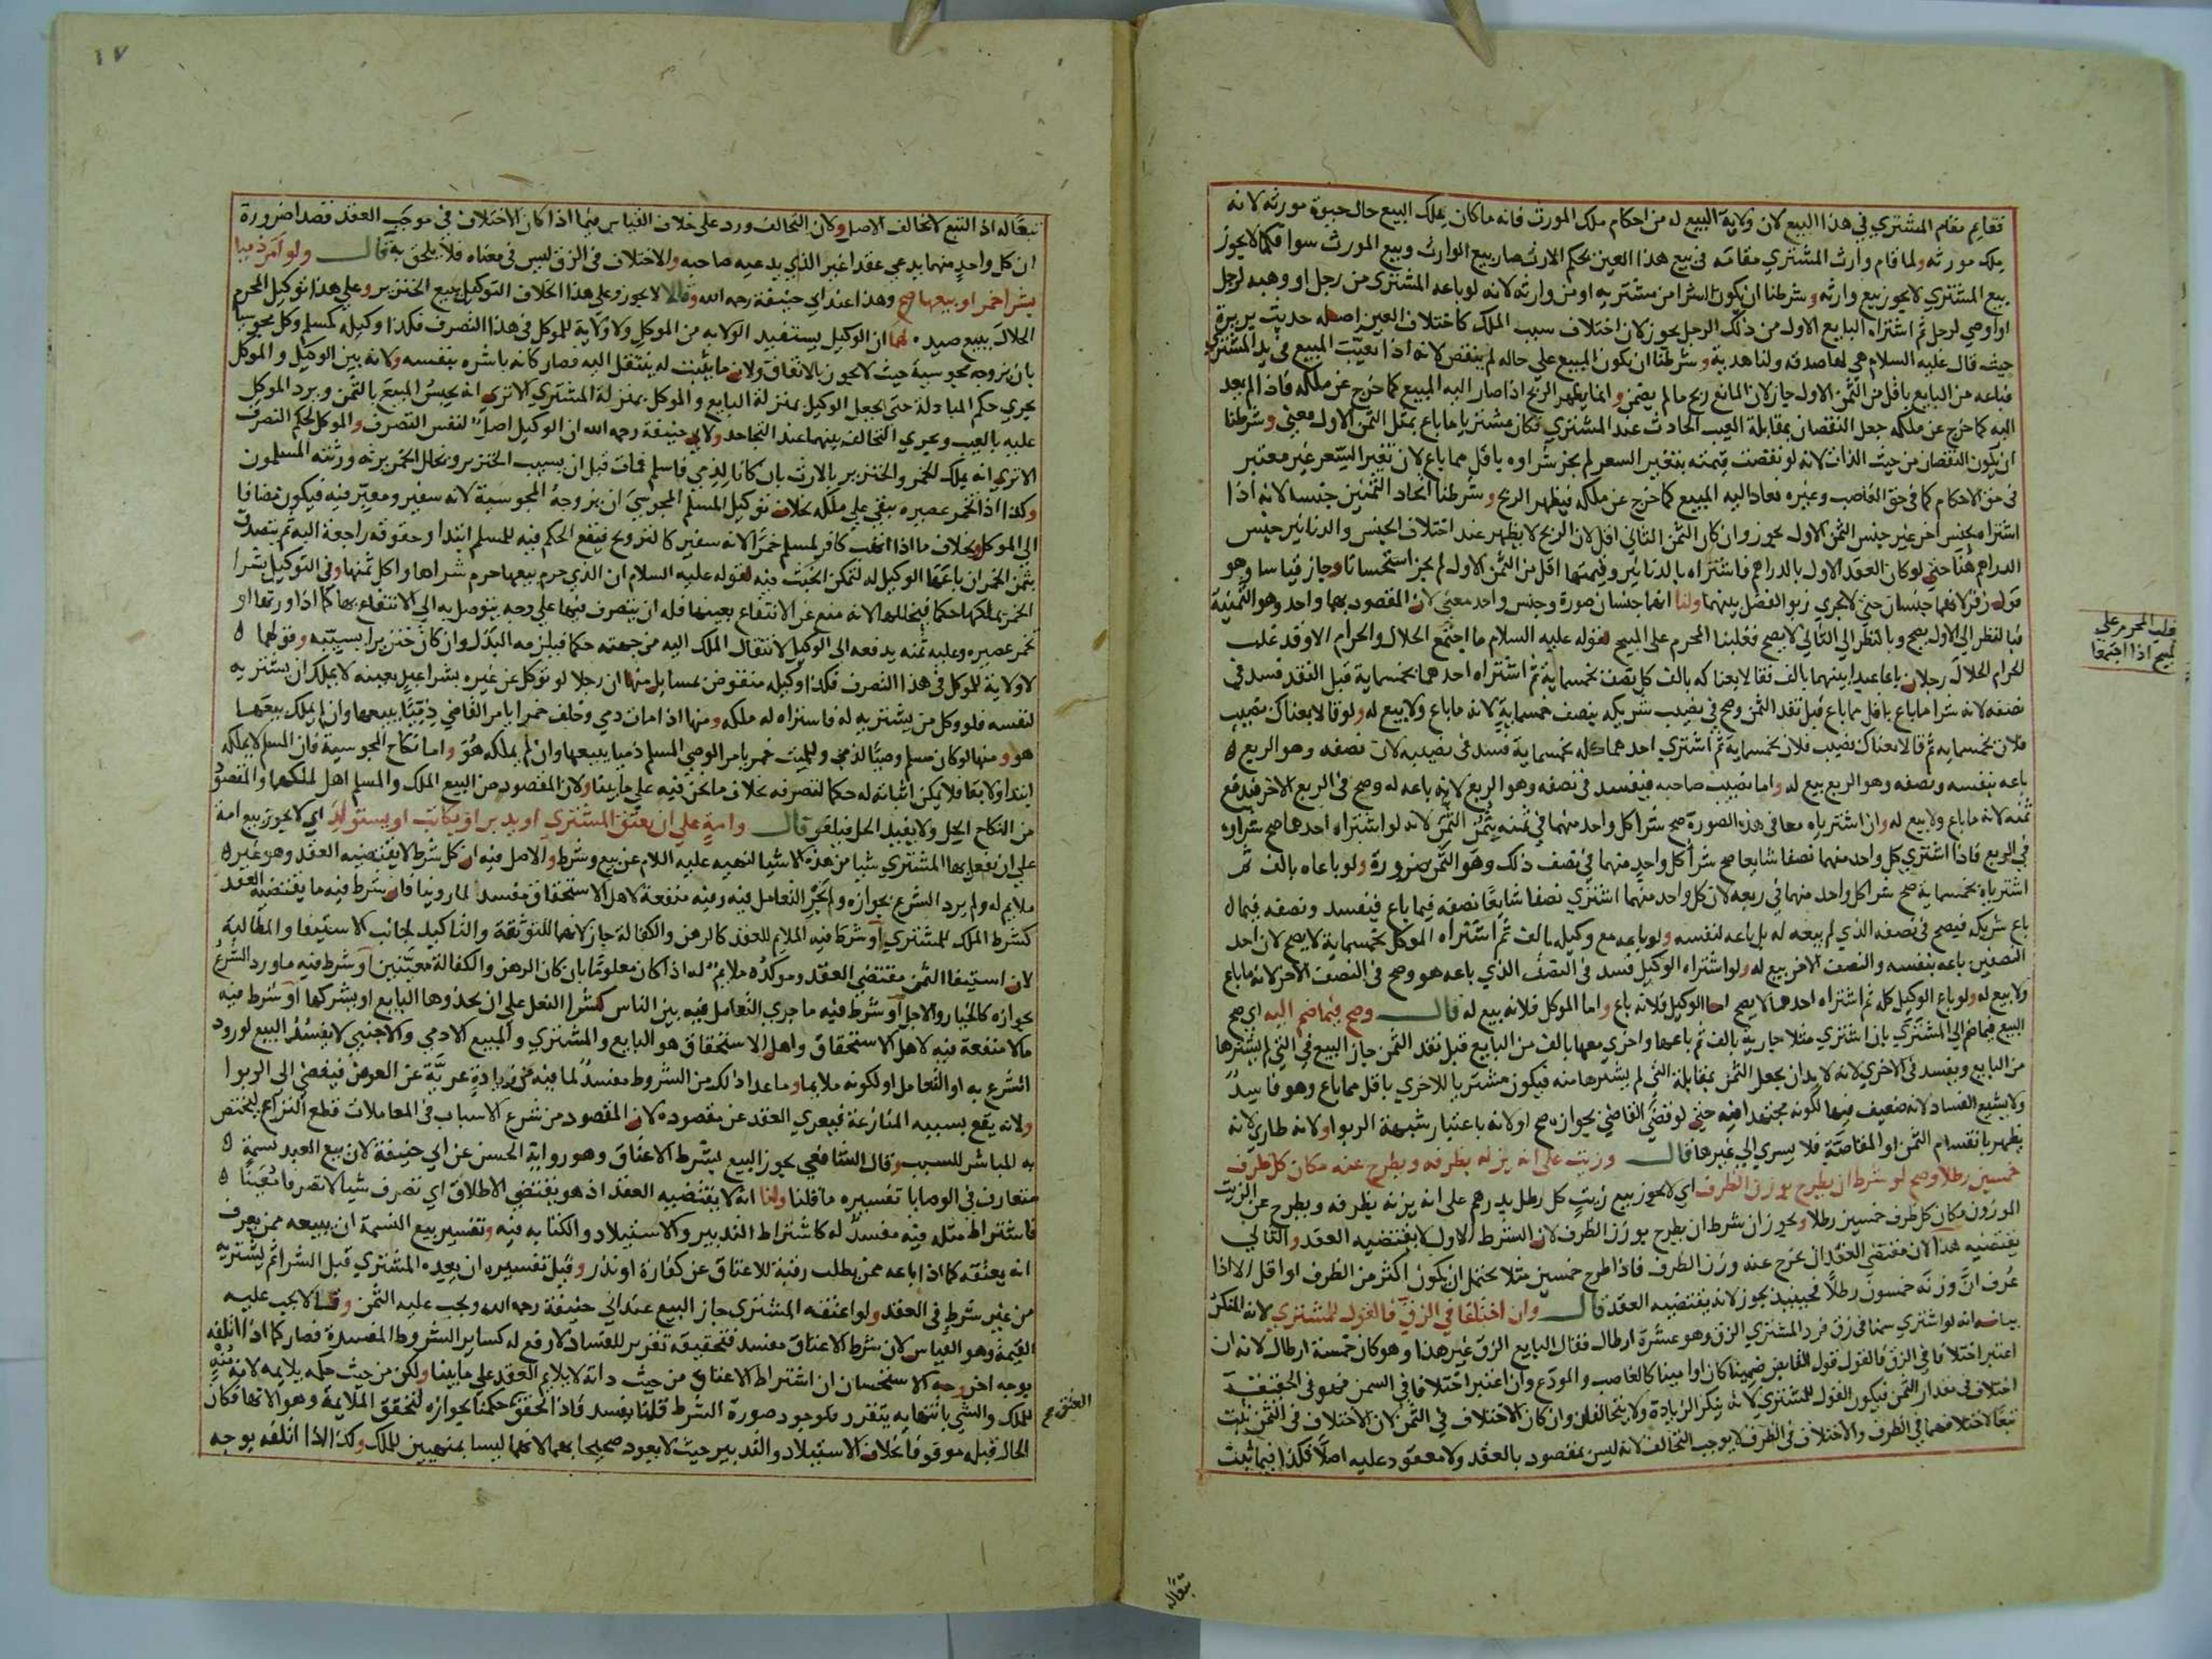 فقايم مقام المشتري في هذا البيع لان ولاية البيع له من احكام ملك المورث فانه ماكان يملك البيع حال حيوة مورثه لانه
ملك مورثه ولما قام وارث المشتري مقامه في بيع هذا العين بحكم الارث صار بيع الوارث وبيع المورث سوا فكما لا يجوز
بيع المشتري لا يجوز بيع وارثه وشرطنا ان يكون الشرا من مشتريه او من وارثه لانه لو باعه المشتري من رجل او وهبه لرجل
او اوصي لرجل ثم اشتراه البايع الاول من ذلك الرجل يجوز لان اختلاف سبب الملك كاختلاف العين اصله حديث بريرة
حيث قال عليه السلام هي لها صدقه ولنا هدية وشرطنا ان يكون المبيع علي حاله لم ينقص لانه اذا تعيّب المبيع في يد المشتري
فباعه من البايع باقل من الثمن الاول جاز لان المانع ربح ما لم يضمن وانما يظهر الربح اذا صار اليه المبيع كما خرج عن ملكه فاذا لم يعد
اليه كما خرج عن ملكه جعل النقصان بمقابلة العيب الحادث عند المشتري فكان مشتريا ما باع بمثل الثمن الاول معني وشرطنا
ان يكون النقصان من حيث الذات لانه لو نقصت قيمته بتغير السعر لم يجز شراوه باقل مما باع لان تغير السعر غير معتبر
في حق الاحكام كما في حق الغاصب وغيره فعاد اليه المبيع كما خرج عن ملكه فيظهر الربح وشرطنا اتحاد الثمنين جنسا لانه اذا
اشتراه بجنس اخر غير جنس الثمن الاول يجوز وان كان الثمن الثاني اقل لان الربح لا يظهر عند اختلاف الجنس والدنانير جنس
الدراهم هنا حتي لو كان العقد الاول بالدراهم فاشتراه بالدنانير وقيمتها اقل من الثمن الاول لم يجز استحسانا وجاز قياسا وهو
قول زفر لانهما جنسان حتي لا يجري ربو الفضل بينهما ولنا انهما جنسان صورة وجنس واحد معني لان المقصود بهما واحد وهو الثمنية
فبالنظر الي الاول يصح وبالنظر الي الثاني لا يصح فغلبنا المحرم علي المبيح لقوله عليه السلام ما اجتمع الحلال والحرام الا وقد غلب
الحرام الحلال رجلان باعا عبدا بينهما بالف فقالا بعناكه بالف كل نصف بخمسماية ثم اشتراه احدهما بخمسماية قبل النقد فسد في
نصفه لانه شرا ما باع باقل مما باع قبل نقد الثمن وصح في نصيب شريكه بنصف خمسماية لانه ما باع ولا بيع له ولو قالا بعناك نصيب
فلان بخمسمايه ثم قالا بعناك نصيب فلان بخمسماية ثم اشتري احدهما كله بخمسماية فسد في نصيبه لان نصفه وهو الربع
باعه بنفسه ونصفه وهو الربع بيع له واما نصيب صاحبه فيفسد في نصفه وهو الربع لانه باعه له وصح في الربع الاخر
ثمنه لانه ما باع ولا بيع له وان اشترياه معا في هذه الصورة صح شرا كل واحد منهما في ثمنه بثمن الثمن لانه لو اشتراه احدهما صح شراوه
في الربع فاذا اشتري كل واحد منهما نصفا شايعا صح شرا كل واحد منهما في نصف ذلك وهو الثمن ضرورة ولو باعاه بالف ثم
اشترياه بخمسماية صح شرا كل واحد منهما في ربعه لان كل واحد منهما اشتري نصفا شايعا نصفه فيما باع فيفسد ونصفه فيما
باع شريكه فيصح في نصفه الذي لم يبعه له بل باعه لنفسه ولو باعه مع وكيله بالف ثم اشتراه الموكل بخمسماية لا يصح لان احد
النصفين باعه بنفسه والنصف الاخر بيع له ولو اشتراه الوكيل فسد في النصف الذي باعه هو وصح في النصف الاخر لانه ما باع
ولا بيع له ولو باع الوكيل كله ثم اشتراه احدهما لا يصح اما الوكيل فلانه باع واما الموكل فلانه بيع له قال وصح فيما ضم اليه اي صح
البيع فيما ضم الي المشتري بان اشتري مثلا جارية بالف ثم باعها واخري معها بالف من البايع قبل نقد الثمن جاز البيع في التي لم يشترها
من البايع ويفسد في الاخري لانه لا بد ان يجعل الثمن بمقابلة التي لم يشترها منه فيكون مشتريا للاخري باقل مما باع وهو فاسد
ولا يشيع الفساد لانه ضعيف فيها لكونه مجتهدا فيه حتي لو قضي القاضي بجوازه صح او لانه باعتبار شبهة الربوا ولانه طاري لانه
يظهر بانقسام الثمن او المقاصة فلا يسري الي غيرها قال وزيت علي انه يزنه بظرفه ويطرح عنه مكان كل ظرف
خمسين رطلا وصح لو شرط ان يطرح بوزن الظرف اي لا يجوز بيع زيت كل رطل بدرهم علي انه يزنه بظرفه ويطرح عن الزيت
الموزون مكان كل ظرف خمسين رطلا ويجوز ان شرط ان يطرح بوزن الظرف لان الشرط الاول لا يقتضيه العقد والثاني
يقتضيه هذا لان مقتضي العقد ان يخرج عنه وزن الظرف فاذا طرح خمسين مثلا يحتمل ان يكون اكثر من الظرف او اقل الا اذا
عرف ان وزنه خمسون رطلا فحينيذ يجوز لانه يقتضيه العقد قال وان اختلفا في الزق فالقول للمشتري لانه المنكر
بيانه انه لو اشتري سمنا في زق فرد المشتري الزق وهو عشرة ارطال فقال البايع الزق غير هذا وهو كان خمسة ارطال لانه ان
اعتبر اختلافا في الزق فالقول قول القابض ضمينا كان او امينا كالغاصب والمودع وان اعتبر اختلافا في السمن فهو في الحقيقة
اختلاف في مقدار الثمن فيكون القول للمشتري لانه ينكر الزيادة ولا يتحالفان وان كان الاختلاف في الثمن لان الاختلاف في الثمن ثبت
تبعا لاختلافهما في الظرف والاختلاف في الظرف لا يوجب التحالف لانه ليس بمقصود بالعقد ولا معقود عليه اصلا فكذا فيما ثبت
غلب المحرم علي
المبيح اذا اجتمعا
تبعا له
١٧
تبعا له اذ التبع لا يخالف الاصل ولان التحالف ورد علي خلاف القياس فيما اذا كان الاختلاف في موجب العقد قصدا ضرورة
ان كل واحد منهما يدعي عقدا غير الذي يدعيه صاحبه والاختلاف في الزق ليس في معناه فلا يلحق به قال ولو امر ذميا
بشرا خمر او بيعها صح وهذا عند ابي حنيفة رحمه الله وقالا لا يجوز وعلي هذا الخلاف التوكيل ببيع الخنزير وعلي هذا توكيل المحرم
الحلال ببيع صيد لهما ان الوكيل يستفيد الولايه من الموكل ولا ولاية للموكل في هذا التصرف فكذا وكيله كمسلم وكل مجوسيا
بان يزوجه مجوسية حيث لا يجوز بالاتفاق ولان ما يثبت له ينتقل اليه فصار كانه باشره بنفسه ولانه بين الوكيل والموكل
يجري حكم المبادلة حتي يجعل الوكيل بمنزلة البايع والموكل بمنزلة المشتري الا تري انه يحبس المبيع بالثمن ويرد الموكل
عليه بالعيب ويجري التحالف بينهما عند التجاحد ولابي حنيفة رحمه الله ان الوكيل اصل لنفس التصرف والموكل لحكم التصرف
الا تري انه يملك الخمر والخنزير بالارث بان كانا لذمي فاسلم فمات قبل ان يسيب الخنزير وتخلل الخمر يرثه ورثته المسلمون
وكذا اذا تخمر عصيره يبقي علي ملكه بخلاف توكيل المسلم المجوسي ان يزوجه المجوسية لانه سفير ومعبر فيه فيكون مضافا
الي الموكل وبخلاف ما اذا اتهب كافر لمسلم خمرا لانه سفير كالتزويج فيقع الحكم فيه للمسلم ابتدا وحقوقه راجعة اليه ثم يتصدق
بثمن الخمر ان باعها الوكيل له لتمكن الخبث فيه لقوله عليه السلام ان الذي حرم بيعها حرم شراها واكل ثمنها وفي التوكيل بشرا
الخمر يملكها حكما فيخللها لانه منع عن الانتفاع بعينها فله ان يتصرف فيها علي وجه يتوصل به الي الانتفاع بها كما اذا ورثها او
تخمر عصيره وعليه ثمنه يدفعه الي الوكيل لانتقال الملك اليه من جهته حكما فيلزمه البدل وان كان خنزيرا يسيبه وقولهما
لا ولاية للموكل في هذا التصرف فكذا وكيله منقوض بمسايل منها ان رجلا لو توكل عن غيره بشرا عبد بعينه لا يملك ان يشتريه
لنفسه فلو وكل من يشتريه له فاشتراه له ملكه ومنها اذا مات ذمي وخلف خمرا يامر القاضي ذميا ببيعها وان لم يملك بيعها
هو ومنها لو كان مسلم وصيا لذمي وللميت خمر يامر الوصي المسلم ذميا ببيعها وان لم يملكه هو واما نكاح المجوسية فان المسلم لا يملكه
ابتدا ولا بقا فلا يمكن اثباته له حكما لتصرفه بخلاف ما نحن فيه علي ما بينا ولان المقصود من البيع الملك والمسلم اهل لملكهما والمقصود
من النكاح الحل ولا يفيد الحل فيلغو قال وامة علي ان يعتق المشتري او يدبر او يكاتب او يستولد اي لا يجوز بيع امة
علي ان يفعل بها المشتري شيا من هذه الاشيا لنهيه عليه السلام عن بيع وشرط والاصل فيه ان كل شرط لا يقتضيه العقد وهو غير
ملايم له ولم يرد الشرع بجوازه ولم يجز التعامل فيه وفيه منفعة لاهل الاستحقاق مفسد لما روينا فان شرط فيه ما يقتضيه العقد
كشرط الملك للمشتري او شرط فيه الملايم للعقد كالرهن والكفالة جاز لانهما للتوثقة والتاكيد لجانب الاستيفا والمطالبة
لان استيفا الثمن مقتضي العقد وموكده ملايم له اذا كان معلوما بان كان الرهن والكفالة معينين او شرط فيه ما ورد الشرع
بجوازه كالخيار والاجل او شرط فيه ما جري التعامل فيه بين الناس كشرا النعل علي ان يحذوها البايع او يشركها او شرط فيه
ما لا منفعة فيه لاهل الاستحقاق واهل الاستحقاق هو البايع والمشتري والمبيع الادمي والاجنبي لا يفسد البيع لورود
الشرع به او التعامل او لكونه ملايما وما عدا ذلك من الشروط مفسد لما فيه من زيادة عرية عن العوض فيفضي الي الربوا
ولانه يقع بسببه المنازعة فيعري العقد عن مقصوده لان المقصود من شرع الاسباب في المعاملات قطع النزاع ليختص
به المباشر للسبب وقال الشافعي يجوز البيع بشرط الاعتاق وهو رواية الحسن عن ابي حنيفة لان بيع العبد نسمة
متعارف في الوصايا تفسيره ما قلنا ولنا انه لا يقتضيه العقد اذ هو يقتضي الاطلاق اي تصرف شا لا تصرفا معينا
فاشتراط مثله فيه مفسد له كاشتراط التدبير والاستيلاد والكتابه فيه وتفسير بيع النسمة ان يبيعه ممن يعرف
انه يعتقه كما اذا باعه ممن يطلب رقبة للاعتاق عن كفارة او نذر وقيل تفسيره ان يعده المشتري قبل الشرا ثم يشتريه
من غير شرط في العقد ولو اعتقه المشتري جاز البيع عند ابي حنيفة رحمه الله ويجب عليه الثمن وقالا يجب عليه
القيمة وهو القياس لان شرط الاعتاق مفسد فتحقيقه تقرير للفساد لا رفع له كساير الشروط المفسدة فصار كما اذا اتلفه
بوجه اخر وجه الاستحسان ان اشتراط الاعتاق من حيث ذاته لا يلايم العقد علي ما بينا ولكن من حيث حكمه يلايمه لانه منه
للملك والشي بانتهايه يتقرر فلوجود صورة الشرط قلنا يفسد فاذا تحقق حكمنا بجوازه لتحقق الملايمة وهو الانها فكان
الحال قبله موقوفا بخلاف الاستيلاد والتدبير حيث لا يعود صحيحا بهما لانهما ليسا بمنهيين للملك وكذا اذا اتلفه بوجه
العتق صح